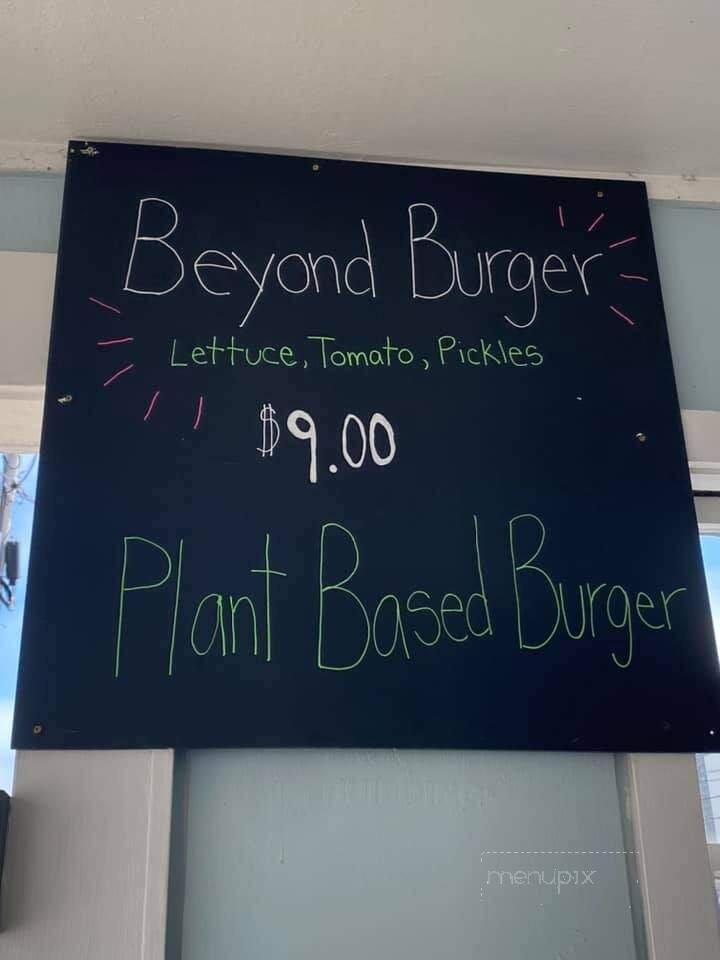 Beyond Burger
Lettuce, Tomato, Pickles
$9.00
Plant Based Burger
menupix